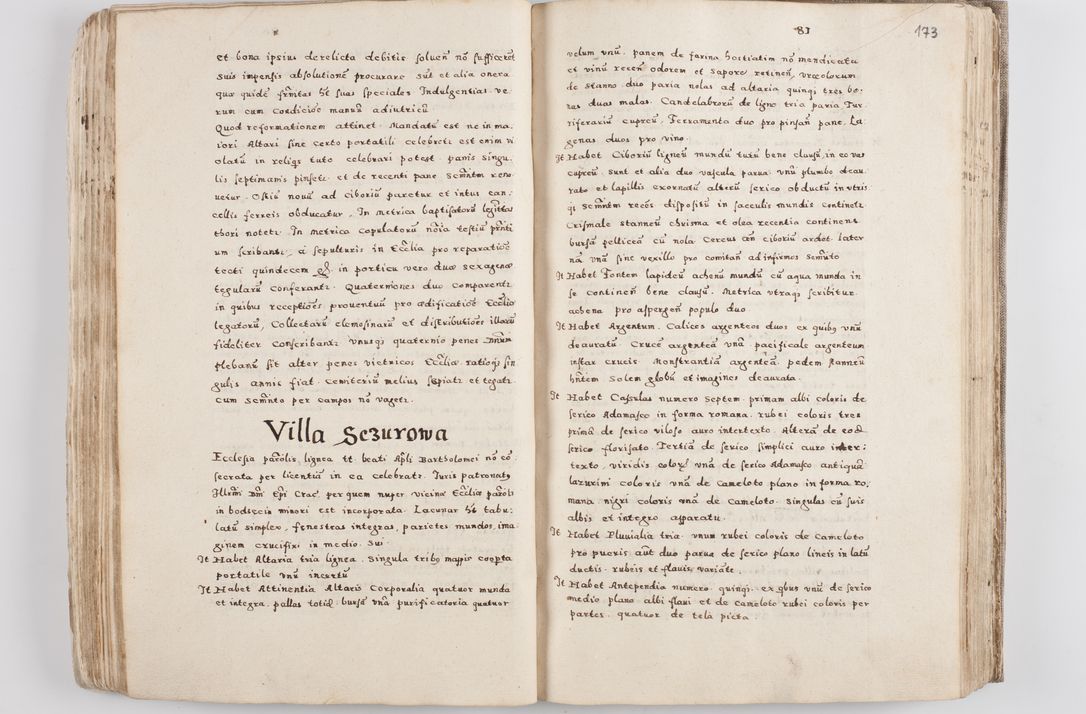 et bona ipsius derelicta debitis soluen̄ nō sufficeret
suis impensis absolutionē procurare sūt et alia onera
quæ quidē firmitas ht̄ suas speciales Indulgentias ve
rum cum conditiōe manuū adiutricū
Quod reformationem attinet. Mandatū est ne in ma
iori Altari sine certo portatili celebretr est enim vi
olatū in reliqs tuto celebrari potest. panis singu
lis septimanis pinsetr et de recenti pane Scmn̄tm reno
uetur. Ostiū nouū ad ciboriū paretur et intus can
cellis ferreis obducatur. In metrica baptisatorū legitti
thori notetr. In metrica copulatorū nōīa testiū pn̄ti
um scribantr, a sepulturis in Eccliā pro reparatiōe
tecti quindecem gr̄. in porticu vero duæ sexagenæ
tegularū conferantr. Quaterniones duo comparentr
in quibus receptiōes prouentuū pro ædificatiōe Eccliæ
legatorū, Collectarū elemosinarū et distributiōes illarū
fideliter Conscribantr vnusqs quaternio penes Dn̄m
Plebanū sit alter penes vietricos Eccliæ ratioqs sin
gulis annis fiat. Cemiteriū melius sepiatr et tegatr
cum Scmn̄to per campos nō vagetr.
Villa Sezurowa
Ecclesia parōlis, lignea tt. beati Apl̄i Bartholomei nō cō
secrata per licentiā in ea celebratr. Iuris patronatus
Illrmi Dn̄i Ep̄i Crac. per quem nuper vicinæ Eccliæ parōli
in bodsęcin minori est incorporata. Lacunar ht̄ tabu
latū simplex, fenestras integras, parietes mundos, ima
ginem crucifixi in medio. sui
It Habet Altaria tria lignea. Singula tribus mappis coopta
portatile vnū incertū
It Habet Attinentia Altaris Corporalia quatuor munda
et integra, pallas totid. bursā vnā purificatoria quatuor
81
173
velum vnū. panem de farina hostiatim nō mendicatū
et vinū recen̄ odorem et sapore retinen̄, vrceolorum
de stanno duo paria nolas ad altaria quinqs tres bo
nas duas malas. Candelabrorū de ligno tria paria Tur
riferariū cupreū, Ferramenta duo pro pinsan̄ pane, La
genas duos pro vino
It Habet Ciboriū ligneū mundū tutū bene clausū, in eo vas
cupreū. sunt et alia duo vascula parua. vnū plumbo deau
rato et lapillis exornatū alterū serico obductū in vtris
qs Scmn̄tm recēs dispositū in sacculis mundis continetr
Crismale stanneū chrisma et olea recentia continens
bursā pelliceā cū nola Cereus an̄ ciboriū ardet. later
nā vnā sine vexillo pro comitan̄ ad infirmos Scmn̄to
It Habet Fontem lapideū achenū mundū cū aqua munda in
se continen̄ bene clausū. Metrica vtraqs scribitur
achena pro aspergen̄ populo duo
It Habet Argentum. Calices argenteos duos ex quibus vnū
deauratū. Crucē argenteā vnā. pacificale argenteum
instar crucis. Monstrantiā argenteā. pedem stanneū
hn̄tem Solem globū et imagines deaurata.
It Habet Casulas numero septem. primam albi coloris de
serico Adamasco in forma romana, rubei coloris tres
primā de serico viloso auro intertexto. Alterā de eod
serico florisato Tertiā de serico simplici auro inter:
texto, viridis colorz vnā de serico Adamasco antiquā
lazurini coloris vnā de Cameloto plano in forma ro:
mana. nigri coloris vnā de Cameloto. Singulas cū suis
albis et integro apparatu.
It Habet Pluuialia tria. vnum rubei coloris de Cameloto
pro pueris aut̄ duo parua de serico plano lineis in latū
ductis. rubeis et flauis variatē.
It Habet Antependia numero quinqs. ex qbus vnū de serico
medio plano albi flaui et de cameloto rubei coloris per
partes. quatuor de tela picta